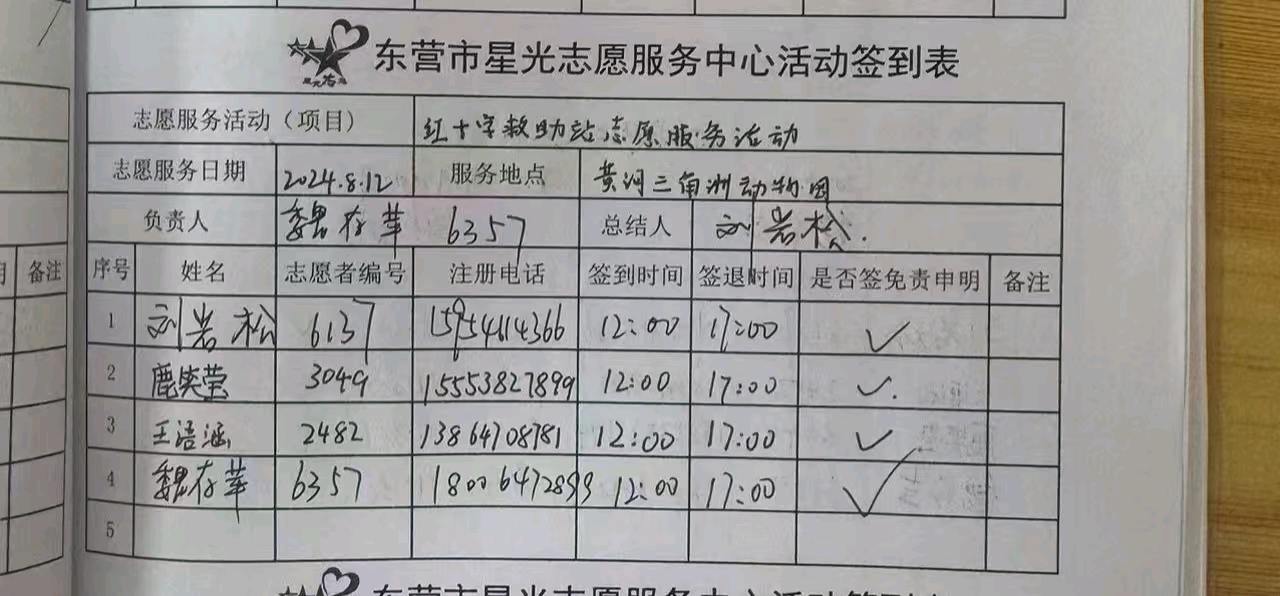 东营市星光志愿服务中心活动签到表
志愿服务活动（项目） 红十字救助站志愿服务活动
志愿服务日期 2024.8.12 服务地点 黄河三角洲动物园
负责人 魏存苹 6357 总结人 刘岩松.
序号 姓名 志愿者编号 注册电话 签到时间 签退时间 是否签免责申明 备注
备注
1 刘岩松 6137 15954614366 12:00 17:00 ✓
2 鹿笑莹 3049 15553827899 12:00 17:00 ✓
3 王浯涵 2482 13864708781 12:00 17:00 ✓
4 魏存苹 6357 18006472899 12:00 17:00 ✓
5
东营市星光志愿服务中心活动签到表